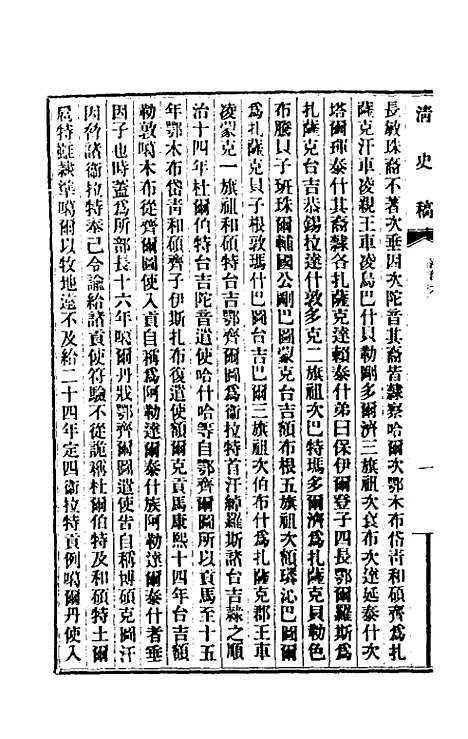 清史稿
一
長敏珠裔不著次垂因次陀音其裔皆隸察哈爾次鄂木布岱青和碩齊爲扎
薩克汗車凌親王車凌烏巴什貝勒剛多爾濟三旗祖次袞布次達延泰什次
塔爾琿泰什其裔隸各扎薩克達賴泰什弟曰保伊爾登子四長鄂爾羅斯爲
扎薩克台吉恭錫拉達什敦多克二旗祖次巴特瑪多爾濟爲扎薩克貝勒色
布騰貝子班珠爾輔國公剛巴圖蒙克台吉額布根五旗祖次額璘沁巴圖爾
爲扎薩克貝子根敦瑪什巴圖台吉巴爾三旗祖次伯布什爲扎薩克郡王車
凌蒙克一旗祖和碩特台吉鄂齊爾圖爲衛拉特首汗綽羅斯諸台吉隸之順
治十四年杜爾伯特台吉陀音遣使哈什哈等自鄂齊爾圖所以貢馬至十五
年鄂木布岱青和碩齊子伊斯扎布復遣使額爾克貢馬康熙十四年台吉額
勒敦噶木布從齊爾圖使入貢自稱爲阿勒達爾泰什族阿勒達爾泰什者垂
因子也時蓋爲所部長十六年噶爾丹戕鄂齊爾圖遣使告自稱博碩克圖汗
因脅諸衛拉特奉己令諭給諸貢使符驗不從詭稱杜爾伯特及和碩特土爾
扈特雖隸準噶爾以牧地遠不及給二十四年定四衛拉特貢例噶爾丹使入